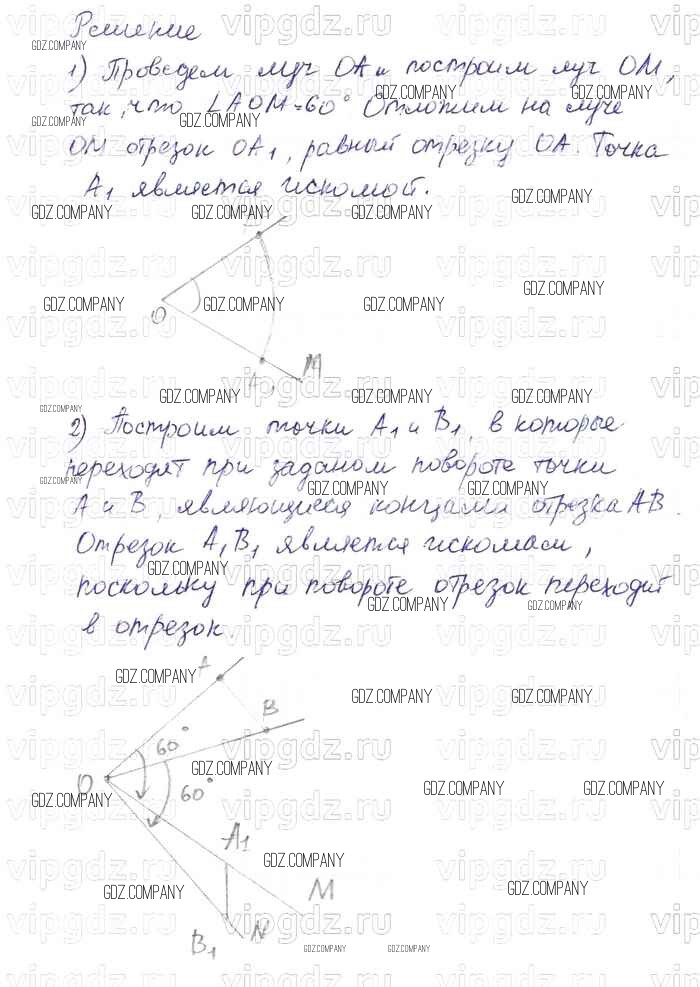 Решение
1) Проведем луч ОА и построим луч ОМ,
так, что ∠AOM=60° Отложим на луче
ОМ отрезок ОА1, равный отрезку ОА. Точка
А1 является искомой.
O
A1
M
2) Построим точки А1 и В1, в которые
переходят при заданом повороте точки
А и В, являющиеся концами отрезка АВ.
Отрезок А1В1 является искомасм,
поскольку при повороте отрезок переходит
в отрезок.
A
B
60°
O
60°
A1
M
N
B1
vipgdz.ru
GDZ.COMPANY